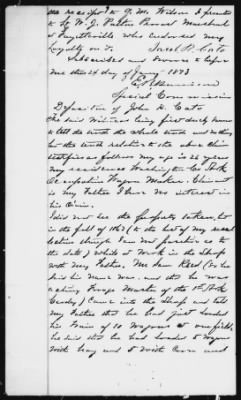 his receipt to J. M. Wilson I presented
to W. J. Patton Provost Marshal
at Fayetteville who endorsed my
loyalty on it. Jacob P. Cato
Subscribed and sworn to before
me this 24 day of Jany 1873
E. R. 
Special Commissioner
Deposition of John H. Cato
The said Witness being first duly sworn
to tell the truth the whole truth and nothing
but the truth relative to the above claim
testifies as follows my age is 26 years
my residence Co Ark
Occupation Wagon Maker. Claimant
is my Father I have no interest in
his Claim.
I did not see the property taken, but
in the fall of 1862 (to the best of my recol
lection though I am not positive as to
the date) while at work in the shop
with my Father, Mr Sam Reed (as he
said his name was, and that he was
acting Forage Master of the 1st Ark
Cavalry) came into the shop and told
my Father that he had just loaded
his train of 10 Wagons at our field,
he said that he had loaded 5 wagons
with hay and 5 with Corn and